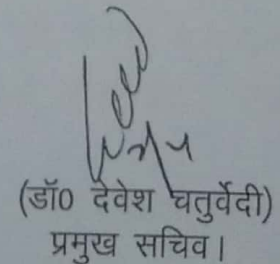 (डॉ0 देवेश चतुर्वेदी)
प्रमुख सचिव।